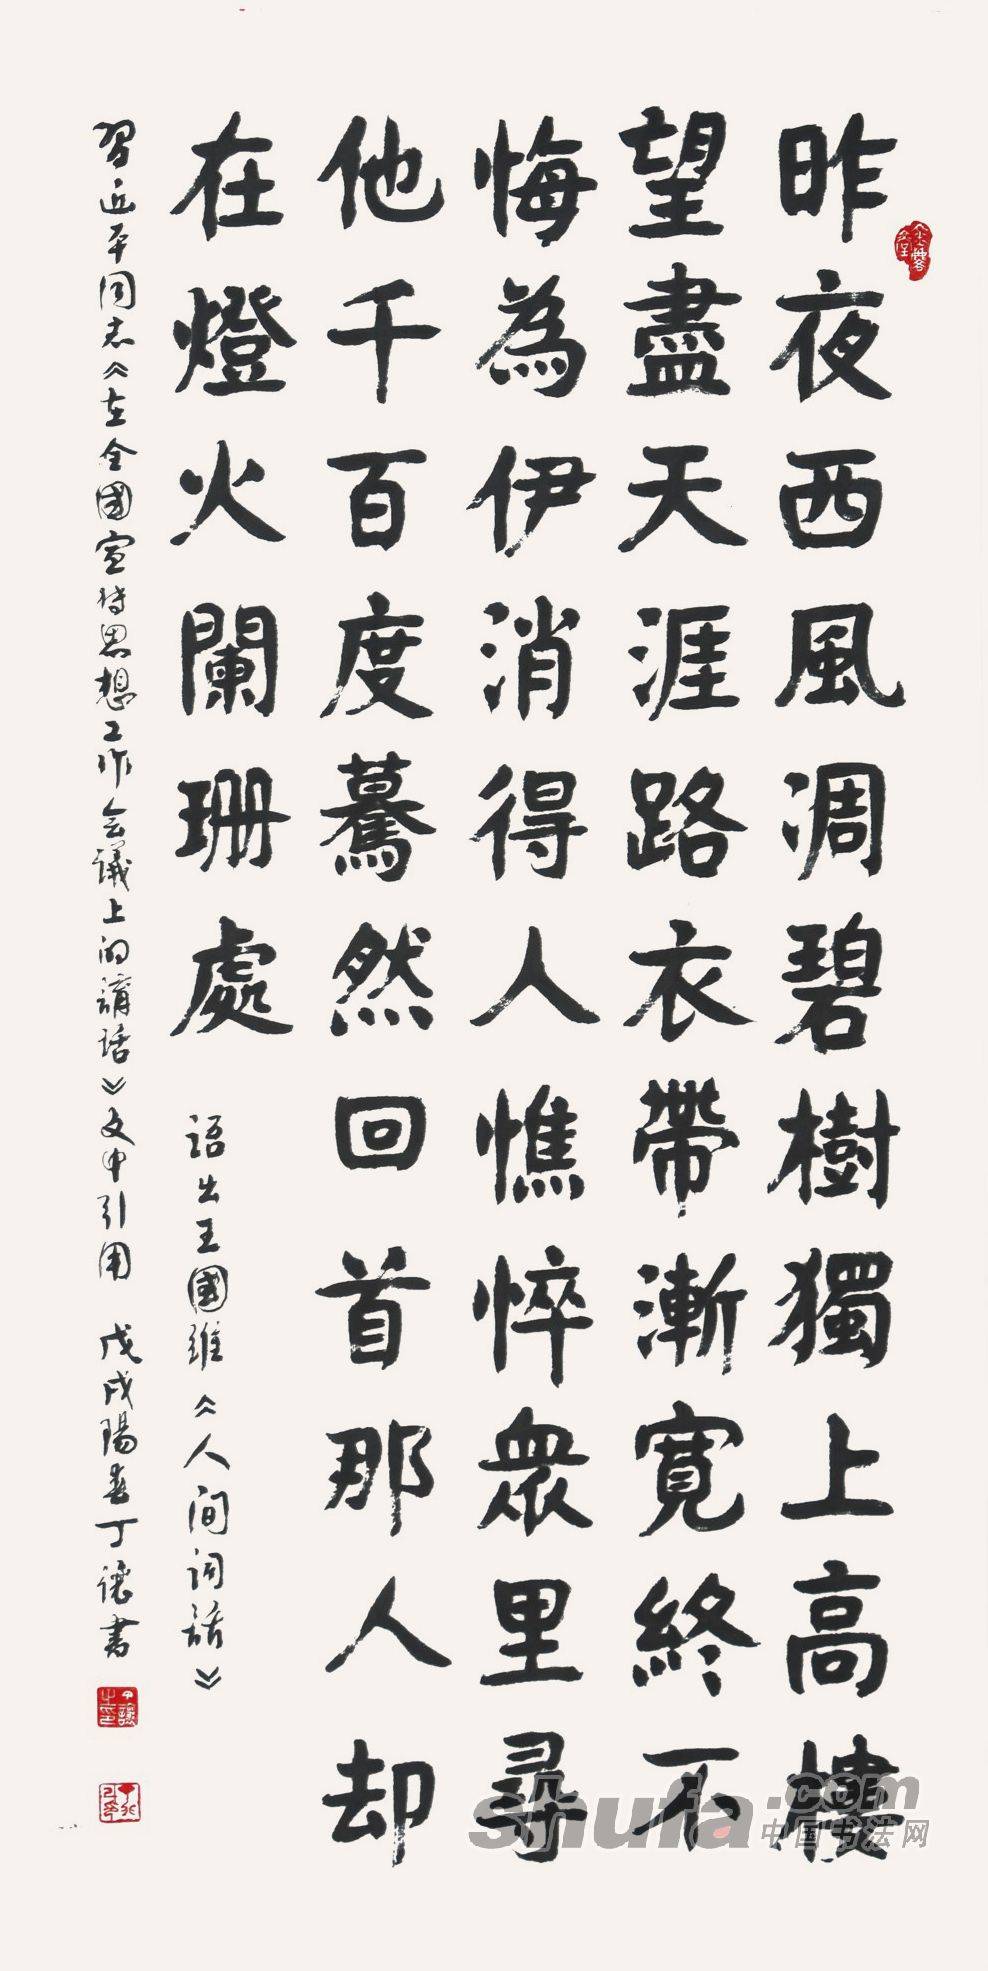 昨夜西風凋碧樹獨上高樓
望盡天涯路衣帶漸寬終不
悔為伊消得人憔悴衆里尋
他千百度驀然回首那人却
在燈火闌珊處
語出王國維《人间词話》
習近平同志《在全國宣传思想工作会議上的講話》文中引用 戊戌陽春丁讓書
shufa.com
中国书法网